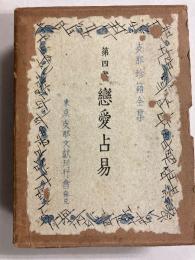 支那珍籍全集
第四
戀愛占易
東京支那文獻刊行會發兌